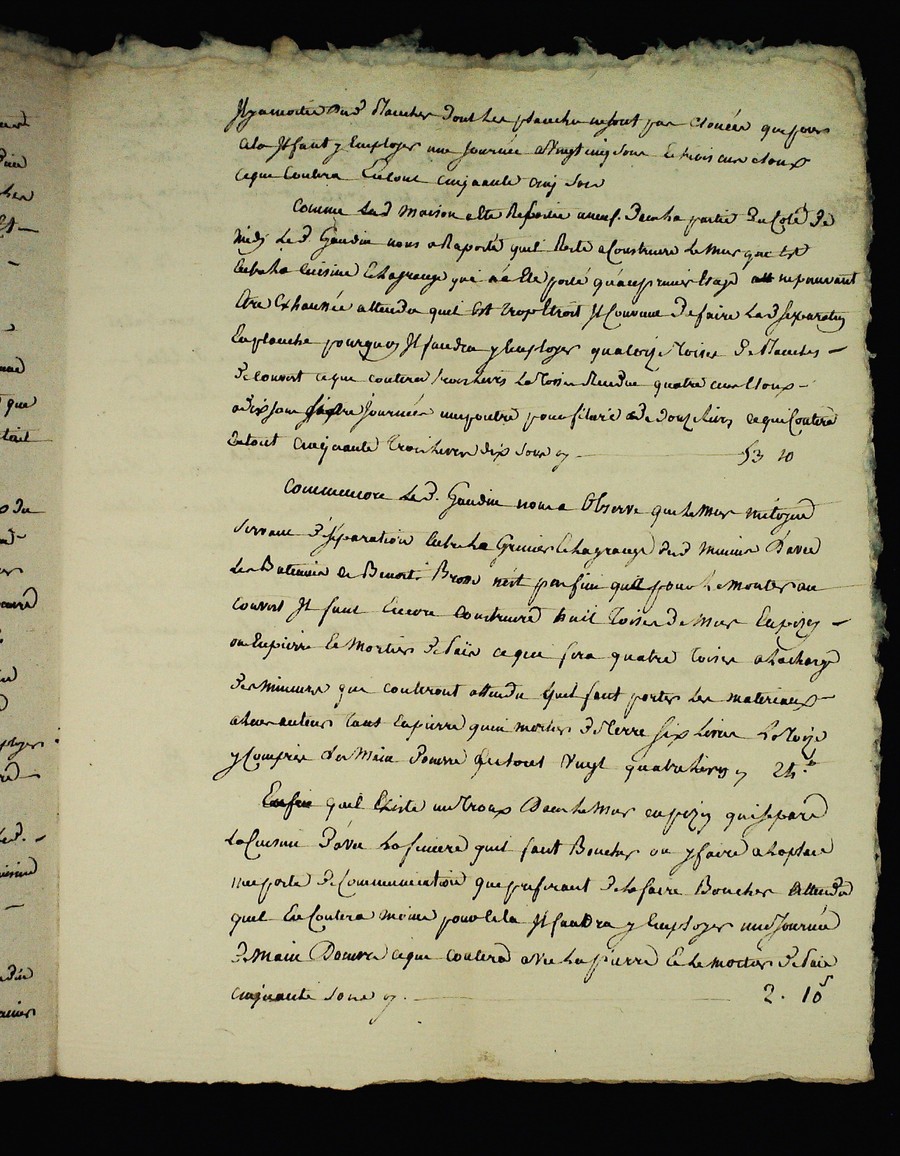 Il y a moitié dud plancher dont les planches ne sont pas clouées que pour
cela Il faut y Employer une Journée a vingt cinq sous Et trois cens cloux
ce que Coutera En tout cinquante cinq sous
Comme Lad maison a Eté Reparée a neuf dans la partie du Coté de
midi Le d. Gaudin nous a Raporté quil Reste a Construire Le mur qui Est
Entre la Cuisine Et la grange qui n'a Eté porté qu'au premier Etage ne pouvant
Etre Exhaussée attendu quil Est trop Etroit Il Convient de faire Lad separation
En planche pourquoy Il faudra y Employer quatorze Toises de planches
de couvert ce que coutera trois livres La Toise Rendue quatre cens Cloux
a dix sous six Journées une poutre pour filarie de douze livres ce qui Coutera
En tout Cinquante Trois livres dix sous y 53 10
Comm'encore Le d. Gaudin nous a Observé que le mur mitoyen
servant de separation Entre Le Grenier Et la grange dud mineur d'avec
Les Batimens de Benoit Brosse n'est pas fini quil pour Le monter au
couvert Il faut Encore Construire huit Toises de mur En pizey
ou En pierre Et Mortier de Taïe ce que fera quatre Toises a la charge
des mineurs que couteront attendu quil faut porter Les materiaux
a hauteur Tant En pierre qu'en mortier de Terre six Livres La Toize
y Compris Les Main d'ouvre En tout Vingt quatre livres y 24.lt
Enfin quil Existe un Troux dans le mur en pizey qui separe
La Cuisine d'avec La feniere quil faut Boucher ou y faire a la place
une porte de Communication que preferant de la faire Boucher attendu
quil En Coutera moins pour cela Il faudra y Employer une Journée
de main d'ouvre ce que coutera avec La pierre Et le mortier de Taïe
cinquante sous y. 2. 10s